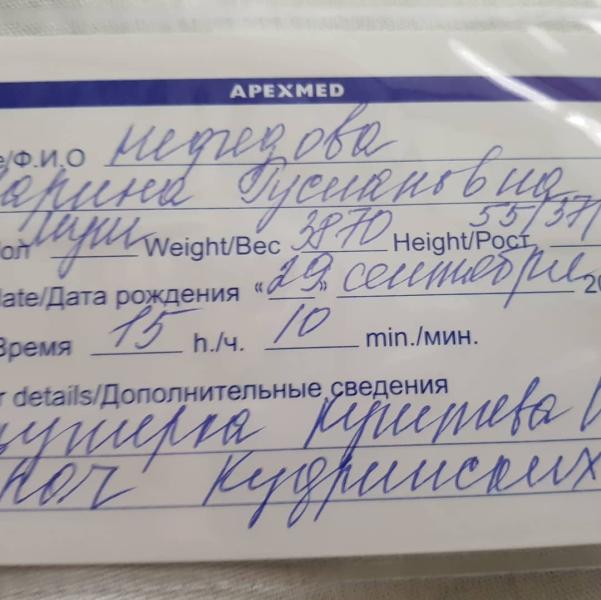 APEXMED
е/Ф.И.О Нефедова
арина Руслановна
ол муж Weight/Вес 3870 Height/Рост 55/37/
date/Дата рождения «29» сентября 20
Время 15 h./ч. 10 min./мин.
r details/Дополнительные сведения
Кушева